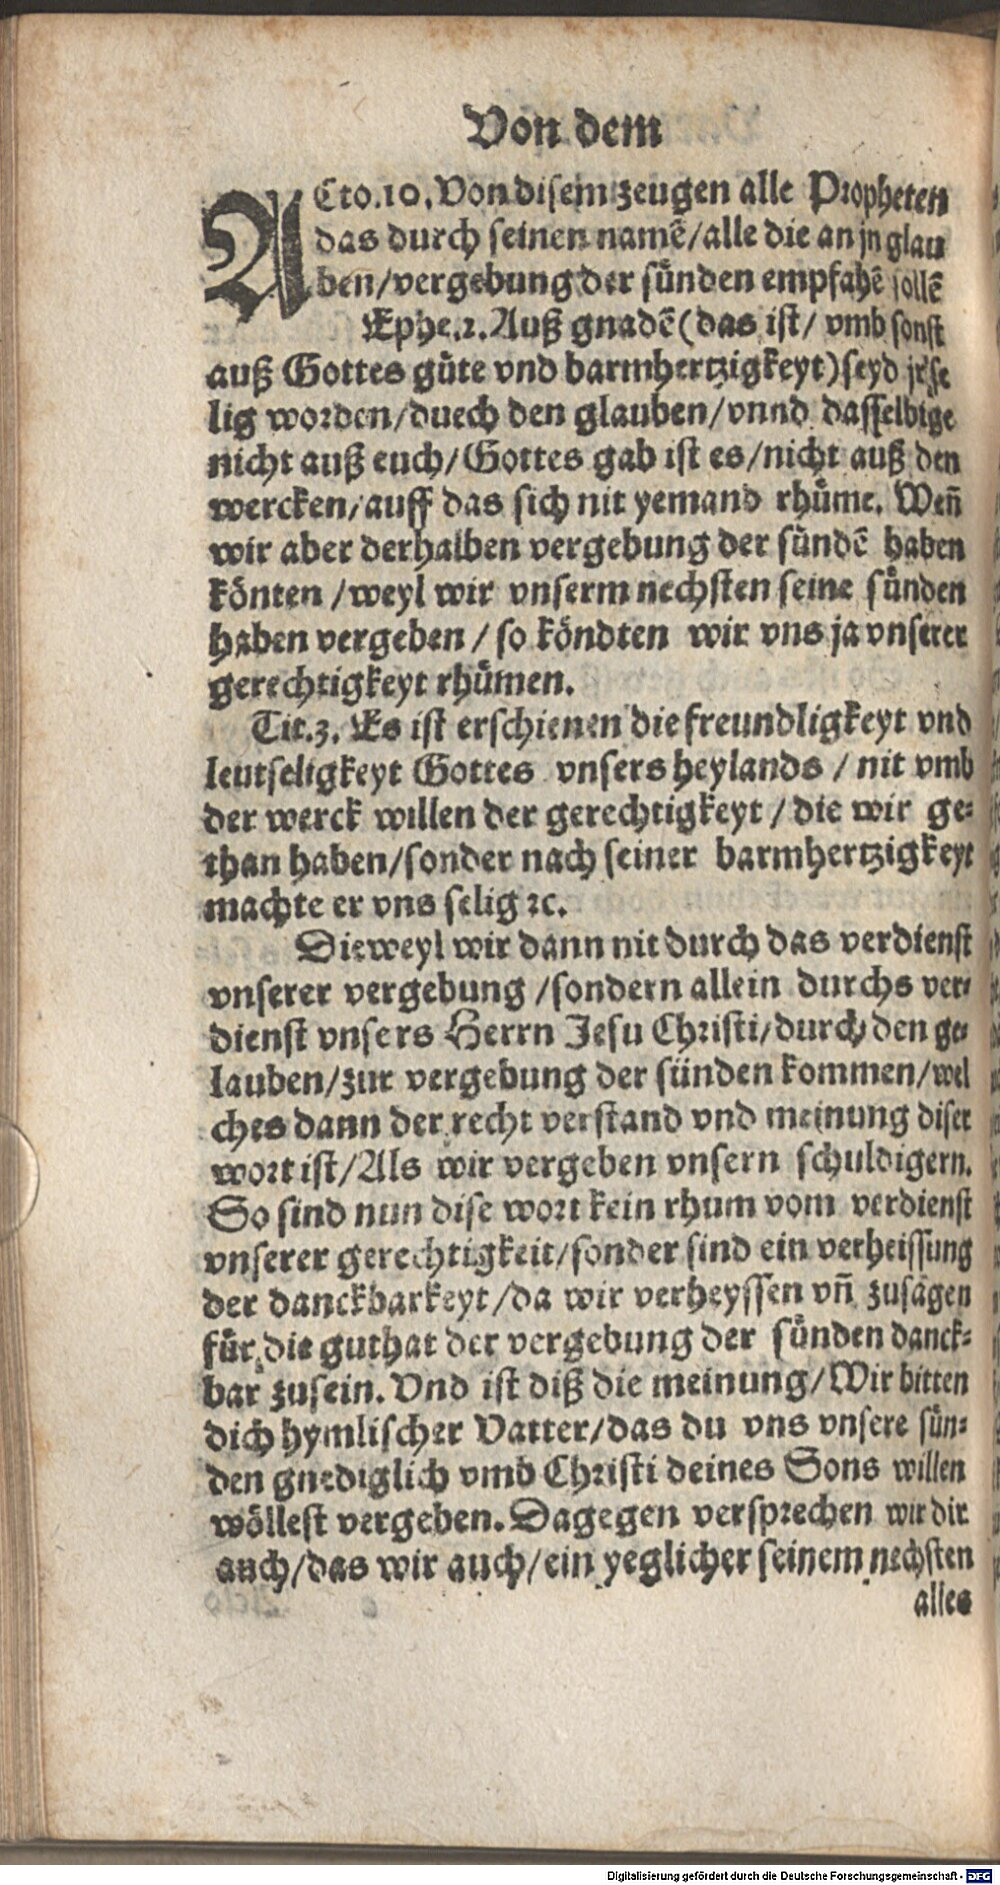 Von dem
ACto.10. Von disem zeugen alle Propheten
das durch seinen namẽ/alle die an jn glau
ben/vergebung der sünden empfahẽ sollẽ
Ephe.2. Auß gnadẽ (das ist/ vmb sonst
auß Gottes güte vnd barmhertzigkeyt) seyd jr se
lig worden/duech den glauben/vnnd dasselbige
nicht auß euch/Gottes gab ist es/nicht auß den
wercken/auff das sich nit yemand rhüme. Weñ
wir aber derhalben vergebung der sündẽ haben
könten /weyl wir vnserm nechsten seine sünden
haben vergeben / so köndten wir vns ja vnserer
gerechtigkeyt rhümen.
Tit.3. Es ist erschienen die freundligkeyt vnd
leutseligkeyt Gottes vnsers heylands / nit vmb
der werck willen der gerechtigkeyt / die wir ge⸗
than haben/sonder nach seiner barmhertzigkeyt
machte er vns selig ꝛc.
Dieweyl wir dann nit durch das verdienst
vnserer vergebung /sondern allein durchs ver⸗
dienst vnsers Herrn Jesu Christi/durch den ge⸗
lauben/zur vergebung der sünden kommen/wel
ches dann der recht verstand vnd meinung diser
wort ist/Als wir vergeben vnsern schuldigern.
So sind nun dise wort kein rhum vom verdienst
vnserer gerechtigkeit/sonder sind ein verheissung
der danckbarkeyt/da wir verheyssen vñ zusagen
für die guthat der vergebung der sünden danck⸗
bar zusein. Vnd ist diß die meinung/Wir bitten
dich hymlischer Vatter/das du vns vnsere sün⸗
den gnediglich vmb Christi deines Sons willen
wöllest vergeben. Dagegen versprechen wir dir
auch/das wir auch/ein yeglicher seinem nechsten
alles
Digitalisierung gefördert durch die Deutsche Forschungsgemeinschaft - DFG